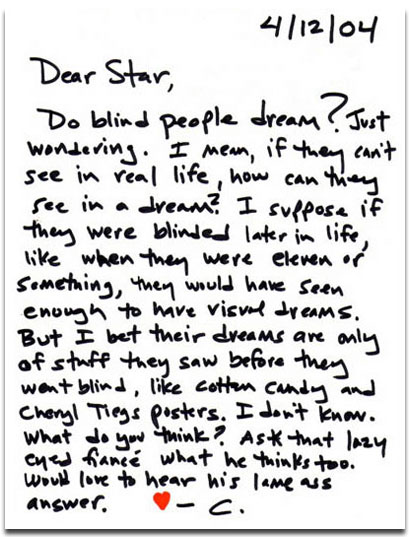 4/12/04
Dear Star,
Do blind people dream? Just
wondering. I mean, if they can't
see in real life, how can they
see in a dream? I suppose if
they were blinded later in life,
like when they were eleven or
something, they would have seen
enough to have visual dreams.
But I bet their dreams are only
of stuff they saw before they
went blind, like cotton candy and
Cheryl Tiegs posters. I don't know.
What do you think? Ask that lazy
eyed fiancé what he thinks too.
Would love to hear his lame ass
answer. ♥ – C.